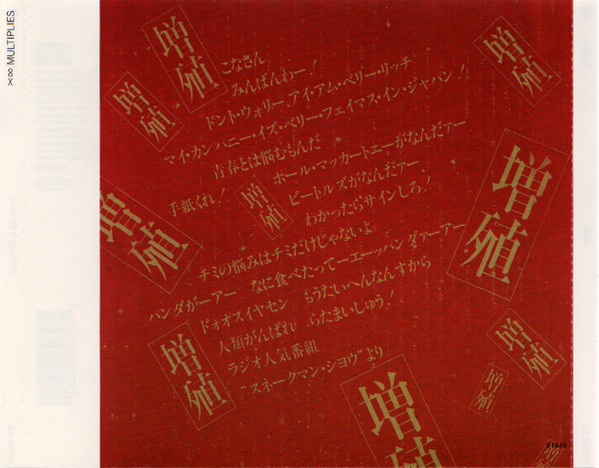 X∞ MULTIPLIES
増殖
増殖
増殖
こなさん
みんばんわー!
ドント・ウォリー、アイ・アム・ベリー・リッチ
マイ・カンパニー・イズ・ベリー・フェイマス・イン・ジャパン!
青春とは悩むもんだ
手紙くれ!
ポール・マッカートニーがなんだァー
ビートルズがなんだァー
わかったらサインしろ!
増殖
増殖
増殖
チミの悩みはチミだけじゃないよ
ハンダがーアー なに食べたってーエーッハンダァーアー
ドォオスイヤセン もうたいへんなんすから
人類がんばれ らたまいしゅう!
ラジオ人気番組
“スネークマン・ショウ”より
増殖
増殖
増殖
増殖